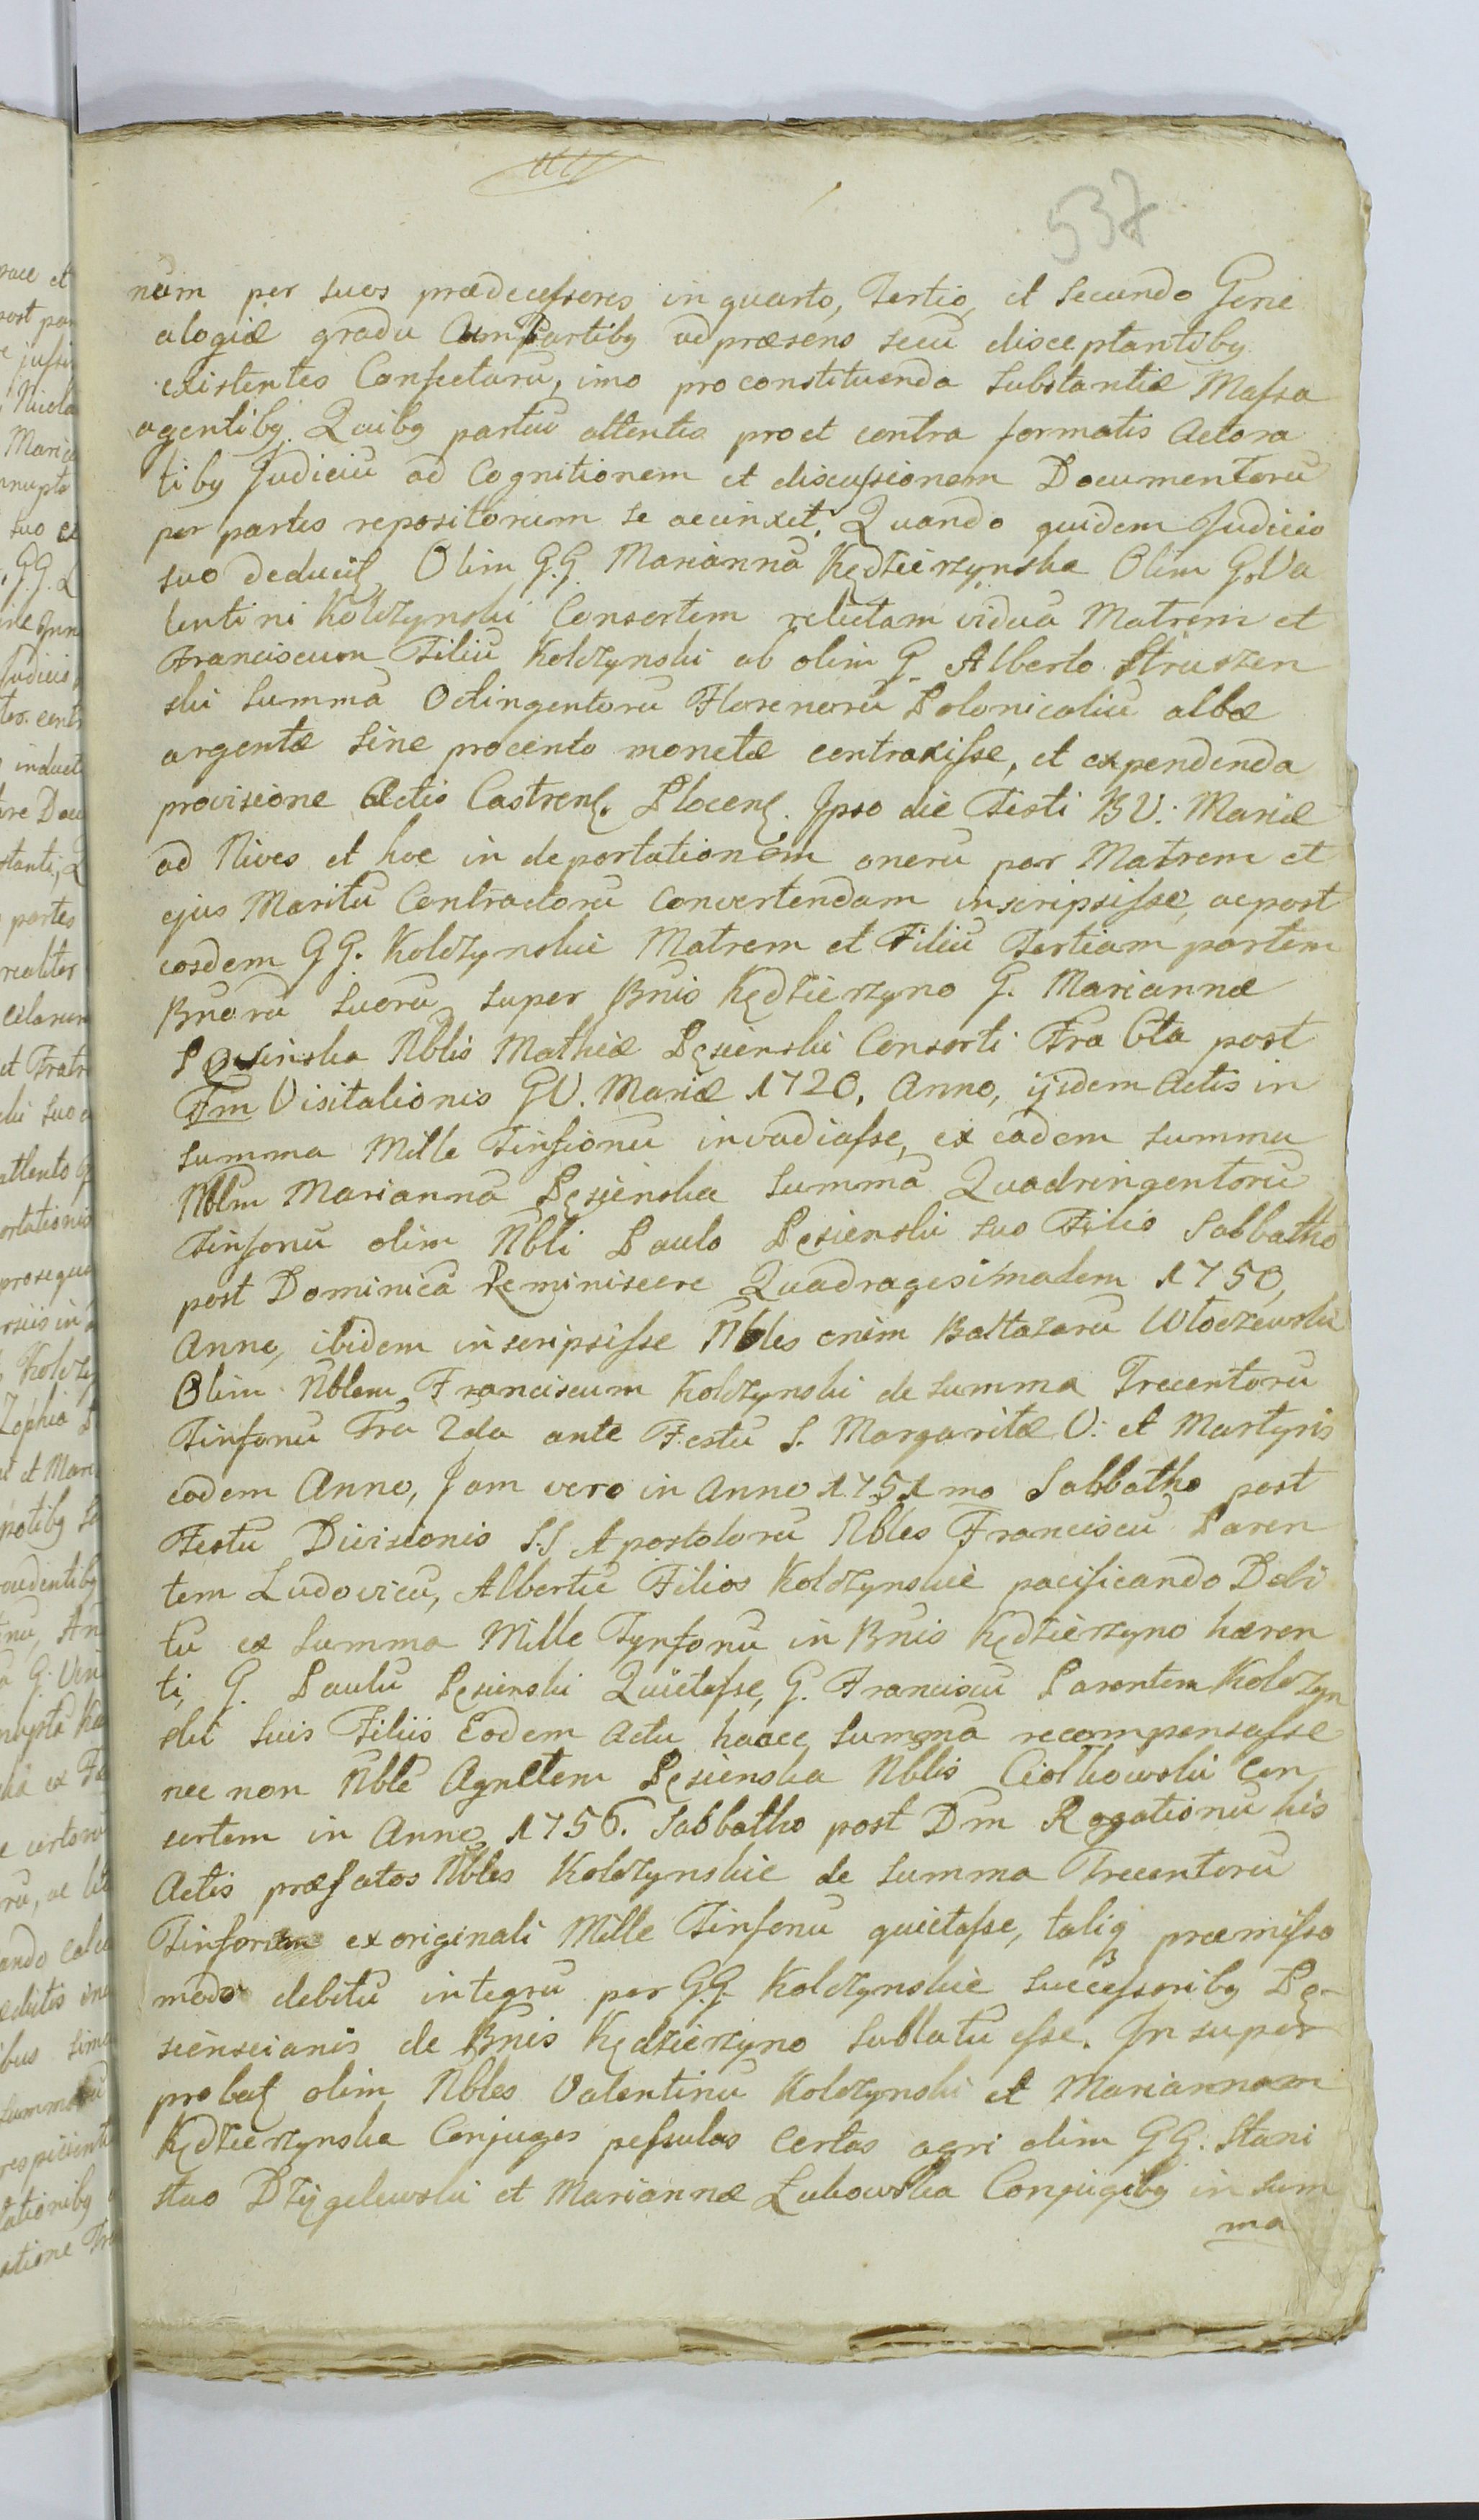 537
num per suos prædecessores in quarto, Tertio, et Secundo Gene
alogiæ gradu cum Partibq ad præsens secū disceptantibq
existentes Consectarū, imo pro constituenda Substantiæ Massa
agentibq. Quibq partiū attentis pro et contra formatis Actora
tibq Judiciū ad Cognitionem et discussionem Documentorū
per partes repositorum se accinxit, Quando quidem Judicio
suo deducit, Olim G.G. Mariannā Kędzierzynska Olim G. Va
lentini Kolczynski Consortem relictam viduā Matrem et
Franciscum Filiū Kolczynski ab olim G. Alberto Struszen
ski Summā Octingentorū Florenorū Polonicaliū albæ
argentæ sine procento monetæ contraxisse, et expendenda
provisione Actis Castrens. Plocens. Ipso die Festi B V. Mariæ
ad Nives et hoc in deportationem onerū par Matrem et
ejus Maritū Contractorū Convertendam inscripsisse, ac post
eosdem GG. Kolczynskie Matrem et Filiū Tertiam partem
Bnorū suorū super Bnis Kędzierzyno G. Mariannæ
Pęsienska Nblis Mathiæ Pęsienski Consorti Fra 6ta post
Fm Visitationis GV. Mariæ 1720. Anno, ijsdem Actis in
summa Mille Tinfionū invadiasse, ex eadem summa
Nblm Mariannā Pęsienska summā Quadringentorū
Tinfonū olim Nbli Paulo Pęsienski suo Filio Sabbatho
post Dominicā Reminiscere Quadragesimalem 1750,
Anno, ibidem inscripsisse Nbles enim Baltazarū Wloczewski
Olim Nblem, Franciscum Kolczynski de summa Trecentorū
Tinfonū Fra 2da ante Festū S. Margaritæ V. et Martyris
eodem Anno, Jam vero in Anno 1751mo Sabbatho post
Festū Divisionis S.S Apostolorū Nbles Franciscū Paren
tem Ludovicū, Albertū Filios Kolczynskie pacificando Debi
tū ex Summa Mille Tynfonū in Bnis Kędzierzyno hæren
ti, G. Paulū Pęsienski Quietasse, G. Franciscū Parentem Kolczyn
ski suis Filiis Eodem Actu haace Summā recompensasse
nec non Nblē Agnetem Pęsienska Nblis Ciolkowski Con
sortem in Anno 1756. Sabbatho post Dm Rogationū his
Actis præfatos Nbles Kolczynskie de Summa Trecentorū
Tinforum ex originali Mille Tinfonū quietasse, taliq præmisso
modo debitū integrū per G.G. Kolczynskie Successoribq Pę-
sienscianis de Bnis Kędzierzyno Sublatū esse. In super
probat, olim Nbles Valentinū Kolczynski et Mariannam
Kędzierzynska Conjuges pessulas Certas agri olim GG. Stani
slao Dzięgelewski et Mariannæ Łukowska Conjugibq in Sum
ma